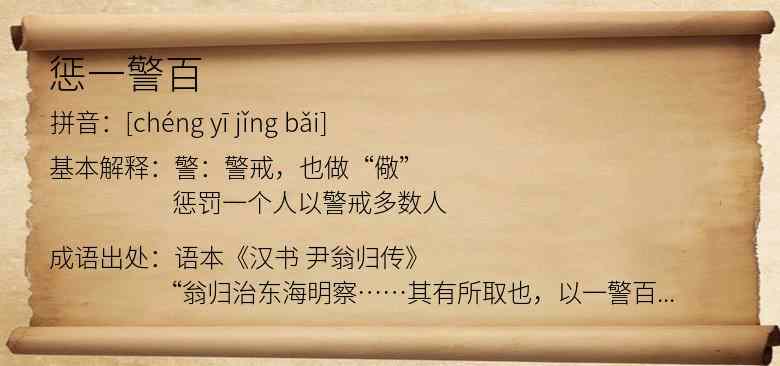 惩一警百
拼音：[chéng yī jǐng bǎi]
基本解释：警：警戒，也做“儆”
惩罚一个人以警戒多数人
成语出处：语本《汉书 尹翁归传》
“翁归治东海明察……其有所取也，以一警百...